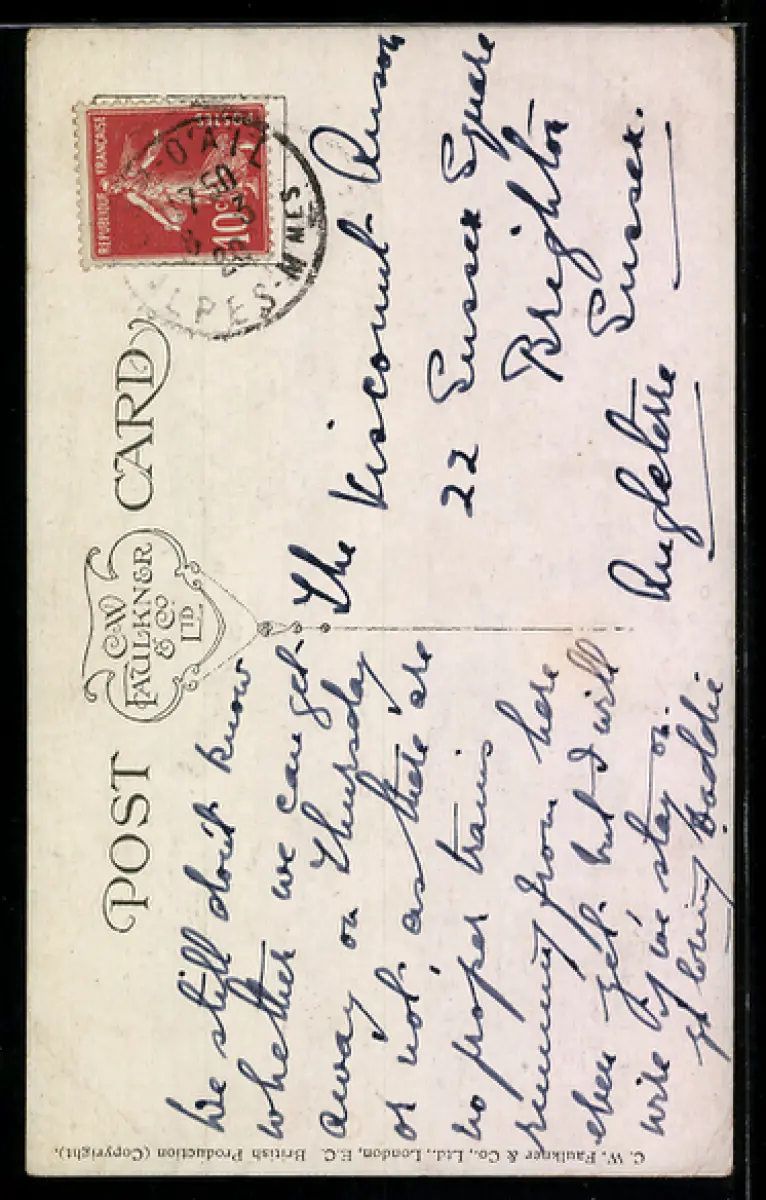 POST CARD
C.W
FAULKNER
& CO
LTD
REPUBLIQUE FRANÇAISE
POSTES
10c
D'AIL
ALPES-MMES
We still don't know
whether we can get
away on Thursday
or not, as there are
no proper trains
running from here
even yet, but I will
wire if we stay on.
yr loving Daddie
The Viscount Anson
22 Sussex Square
Brighton
Sussex.
Angleterre
C. W. Faulkner & Co., Ltd., London, E.C. British Production (Copyright).